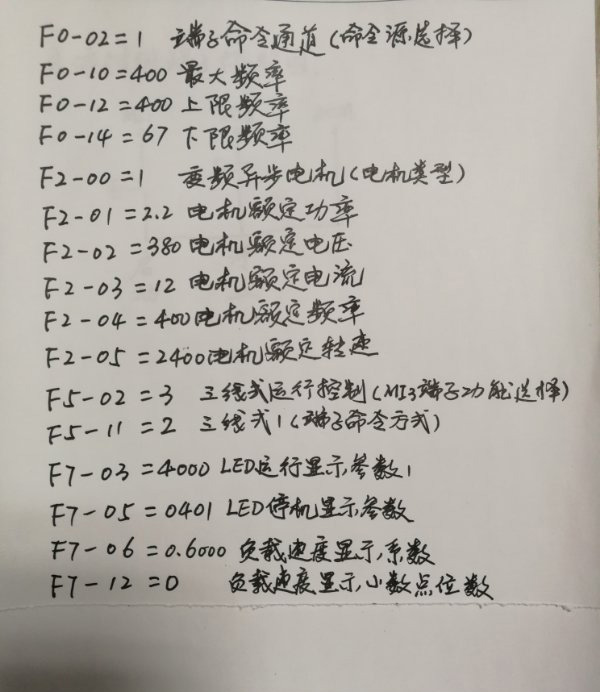 F0-02=1 端子命令通道(命令源选择)
F0-10=400 最大频率
F0-12=400 上限频率
F0-14=67 下限频率
F2-00=1 变频异步电机(电机类型)
F2-01=2.2 电机额定功率
F2-02=380 电机额定电压
F2-03=12 电机额定电流
F2-04=400 电机额定频率
F2-05=2400 电机额定转速
F5-02=3 三线式运行控制(MI3端子功能选择)
F5-11=2 三线式1(端子命令方式)
F7-03=4000 LED运行显示参数1
F7-05=0401 LED停机显示参数
F7-06=0.6000 负载速度显示系数
F7-12=0 负载速度显示小数点位数